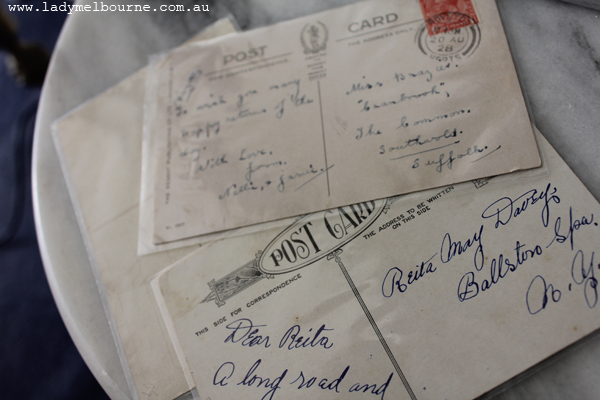 www.ladymelbourne.com.au
POST
CARD
THE ADDRESS ONLY
20 AU
28
To wish you many
happy returns of the
With Love.
from
Miss Bray
"Cranbrook",
The Common,
Southwold.
Suffolk.
POST CARD
THE ADDRESS TO BE WRITTEN
ON THIS SIDE
THIS SIDE FOR CORRESPONDENCE
Reita May Davey,
Ballston Spa.
N. Y.
Dear Reita
A long road and